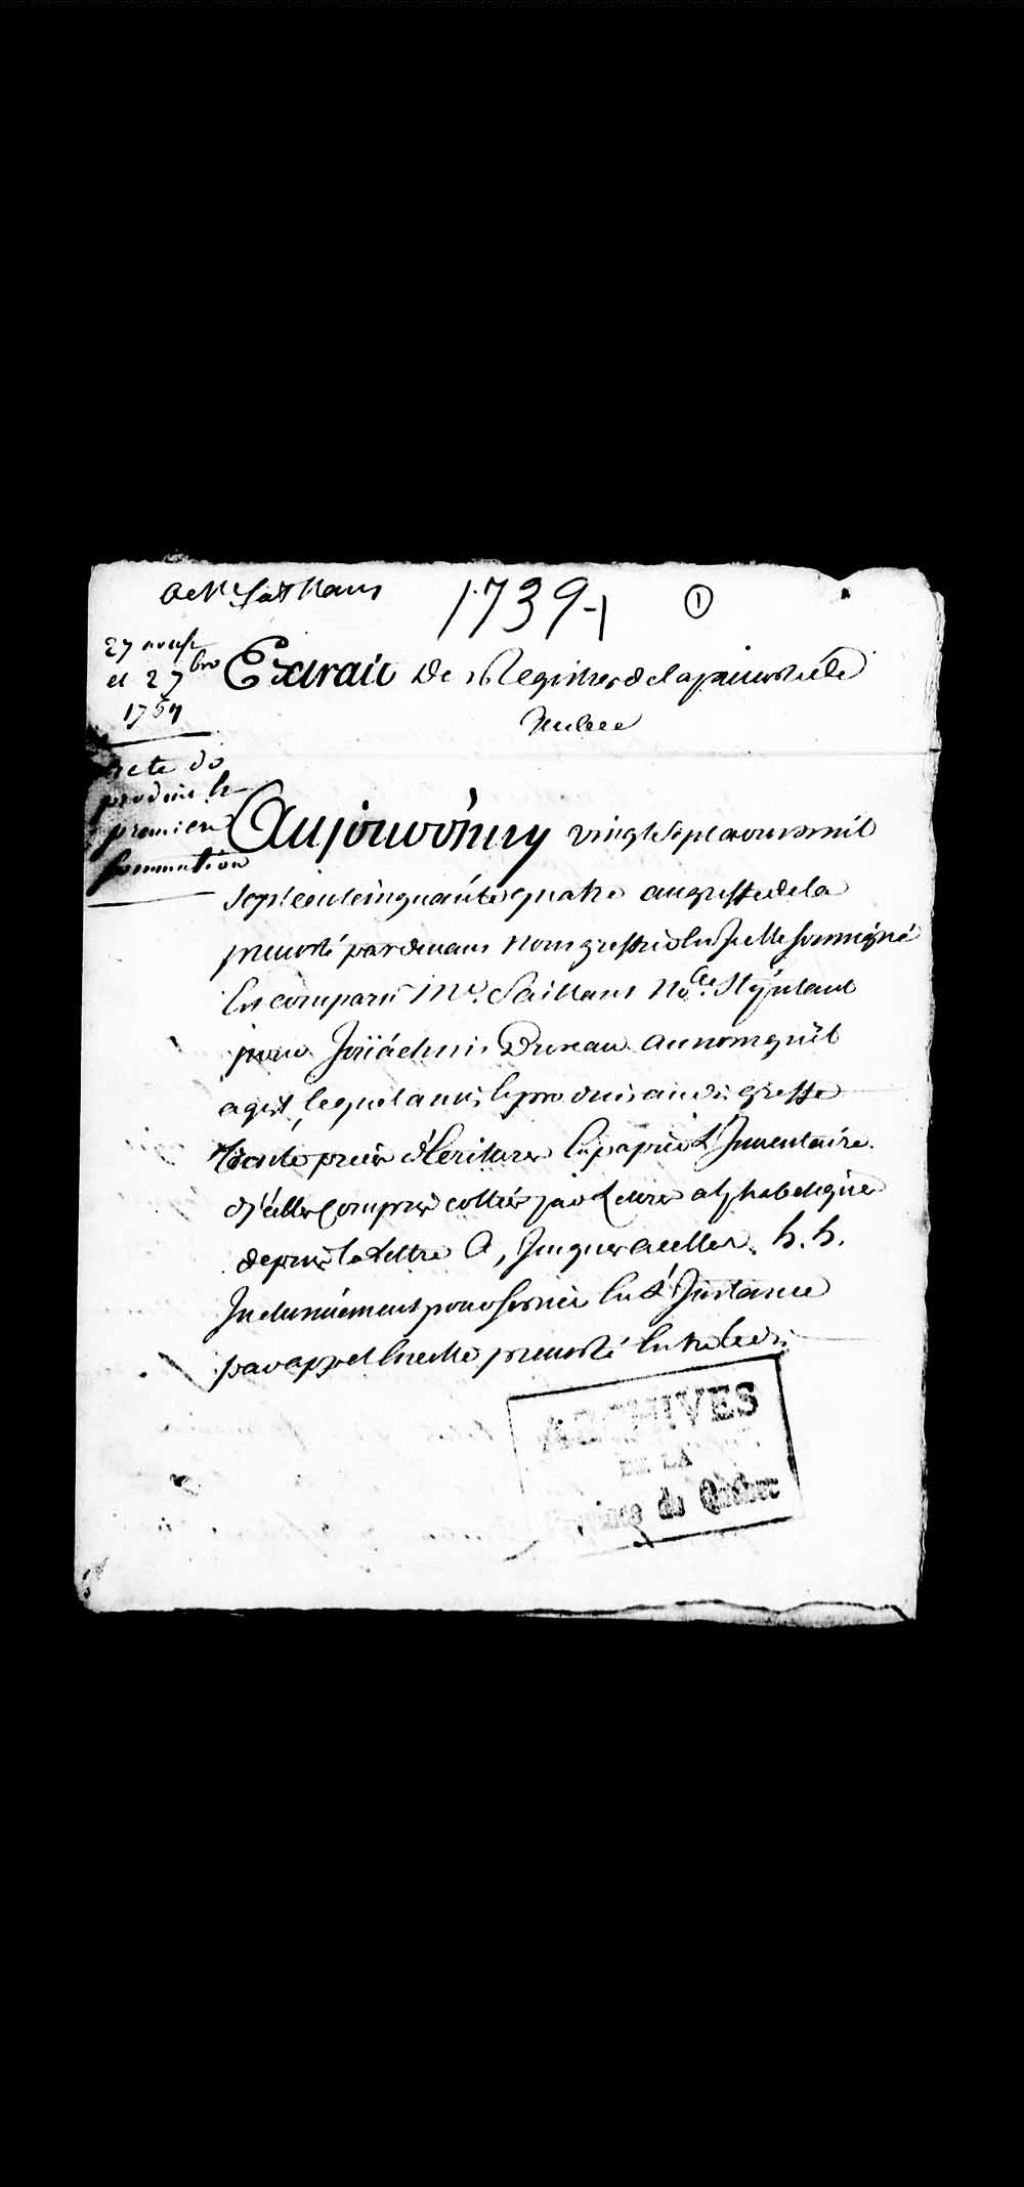 a Me Saillant
1739-1
①
27 aoust
et 27 bre
1754
Extrait Des Registres de la prevosté de
Quebec
acte de
produit le
premier
sommation
Aujourd'huy vingt sept aoust mil
sept cent cinquante quatre au greffe de la
prevosté pardevant nous greffier en jcelle soussigné
Est comparu Me. Saillant No.re Stipulant
pour Joüachin Duneau au nom qu'il
agit, lequel a mis & produit audit greffe
Trente pieces d'Ecritures en papier L'Inventaire
d'jcelles compris cottées par Lettres alphabetiques
depuis la Lettre A, Jusques a celles h. h.
Inclusivement pour servir en L'Instance
par appel en cette prevosté Entre ledit
ARCHIVES
DE LA
Province de Québec